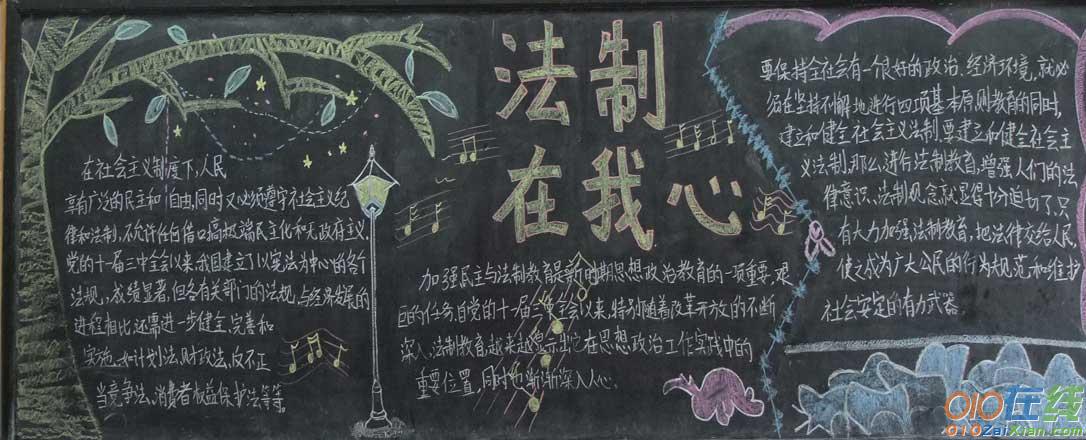 法制
在我心
在社会主义制度下,人民
享有广泛的民主和自由,同时又必须遵守社会主义纪
律和法制,不允许任何借口搞极端民主化和无政府主义,
党的十一届三中全会以来,我国建立了以宪法为中心的各个
法规,成绩显著,但各有关部门的法规,与经济发展的
进程相比,还需进一步健全,完善和
实施,如计划法,财政法,反不正
当竞争法,消费者权益保护法等等。
加强民主与法制教育是新时期思想政治教育的一项重要,艰
巨的任务,自党的十一届三中全会以来,特别随着改革开放的不断
深入,法制教育,越来越显示出它在思想政治工作实践中的
重要位置,同时也渐渐深入人心。
要保持全社会有一个很好的政治、经济环境,就必
须在坚持不懈地进行四项基本原则教育的同时,
建立和健全社会主义法制要建立和健全社会主
义法制,那么,进行法制教育,增强人们的法
律意识、法制观念就显得十分迫切了,只
有大力加强法制教育,把法律交给人民,
使之成为广大公民的行为规范和维护
社会安定的有力武器
010在线
010ZaiXian.com